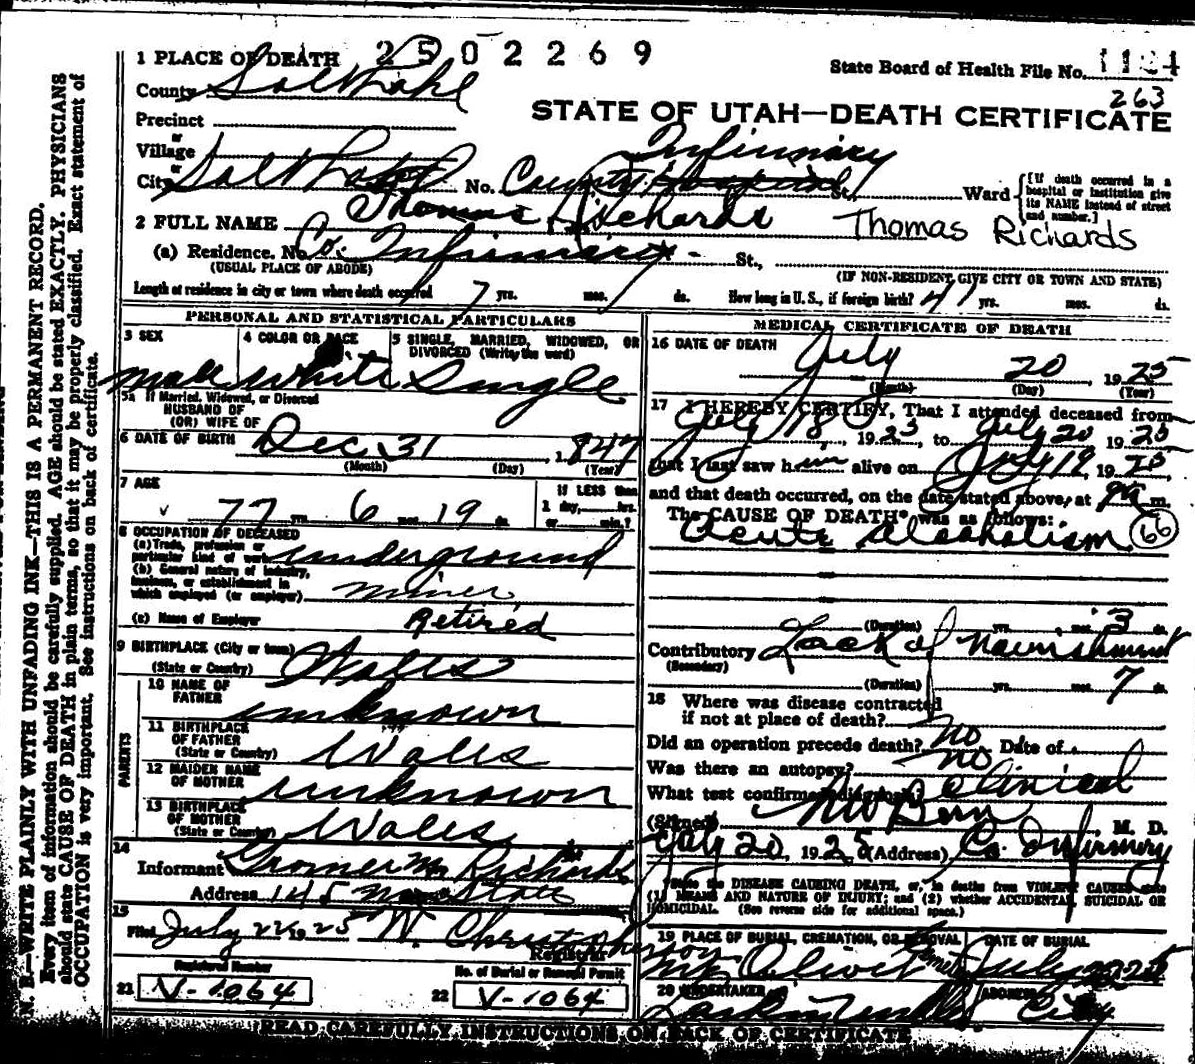 1 PLACE OF DEATH 2502269
State Board of Health File No. 1124
263
County Salt Lake
STATE OF UTAH—DEATH CERTIFICATE
Precinct
or
Village
Infirmary
or
City Salt Lake No. County Hospital St., Ward
{[If death occurred in a
hospital or institution give
its NAME instead of street
and number.]
2 FULL NAME Thomas Richards Thomas Richards
(a) Residence. No. Co. Infirmary St.,
(USUAL PLACE OF ABODE) (IF NON-RESIDENT GIVE CITY OR TOWN AND STATE)
Length of residence in city or town where death occurred 7 yrs. mos. ds. How long in U. S., if foreign birth? 41 yrs. mos. ds.
PERSONAL AND STATISTICAL PARTICULARS
3 SEX 4 COLOR OR RACE 5 SINGLE, MARRIED, WIDOWED, OR
DIVORCED (Write the word)
Male White Single
5a If Married, Widowed, or Divorced
HUSBAND OF
(OR) WIFE OF
6 DATE OF BIRTH Dec 31 1847
(Month) (Day) (Year)
7 AGE If LESS than
77 yrs. 6 mos. 19 ds. 1 day, hrs.
or min.?
8 OCCUPATION OF DECEASED
(a) Trade, profession or
particular kind of work underground
(b) General nature of industry,
business, or establishment in
which employed (or employer) miner
(c) Name of Employer Retired
9 BIRTHPLACE (City or town)
(State or Country) Wales
PARENTS
10 NAME OF
FATHER unknown
11 BIRTHPLACE
OF FATHER
(State or Country) Wales
12 MAIDEN NAME
OF MOTHER unknown
13 BIRTHPLACE
OF MOTHER
(State or Country) Wales
14
Informant M Richards
Address 145 State
15
Filed July 22 1925 W. Christopherson
Registrar
Registered Number No. of Burial or Removal Permit
21 V-1064 22 V-1064
MEDICAL CERTIFICATE OF DEATH
16 DATE OF DEATH July 20, 1925
(Month) (Day) (Year)
17 I HEREBY CERTIFY, That I attended deceased from
July 18, 1925, to July 20 1925
that I last saw him alive on July 19, 1925
and that death occurred, on the date stated above, at m.
The CAUSE OF DEATH* was as follows:
Acute Alcoholism 66
(Duration) yrs. mos. 3 ds.
Contributory Lack of Nourishment
(Secondary)
(Duration) yrs. mos. 7 ds.
18 Where was disease contracted
if not at place of death?
Did an operation precede death? no Date of
Was there an autopsy? no
What test confirmed diagnosis? Clinical
(Signed) , M. D.
July 20, 1925 (Address) Co. Infirmary
*State the DISEASE CAUSING DEATH, or, in deaths from VIOLENT CAUSES state
(1) MEANS AND NATURE OF INJURY; and (2) whether ACCIDENTAL, SUICIDAL OR
HOMICIDAL. (See reverse side for additional space.)
19 PLACE OF BURIAL, CREMATION, OR REMOVAL DATE OF BURIAL
Mt Olivet July 22 25
20 UNDERTAKER ADDRESS
City
READ CAREFULLY INSTRUCTIONS ON BACK OF CERTIFICATE
N. B.—WRITE PLAINLY WITH UNFADING INK—THIS IS A PERMANENT RECORD.
Every item of information should be carefully supplied. AGE should be stated EXACTLY. PHYSICIANS
should state CAUSE OF DEATH in plain terms, so that it may be properly classified. Exact statement of
OCCUPATION is very important. See instructions on back of certificate.